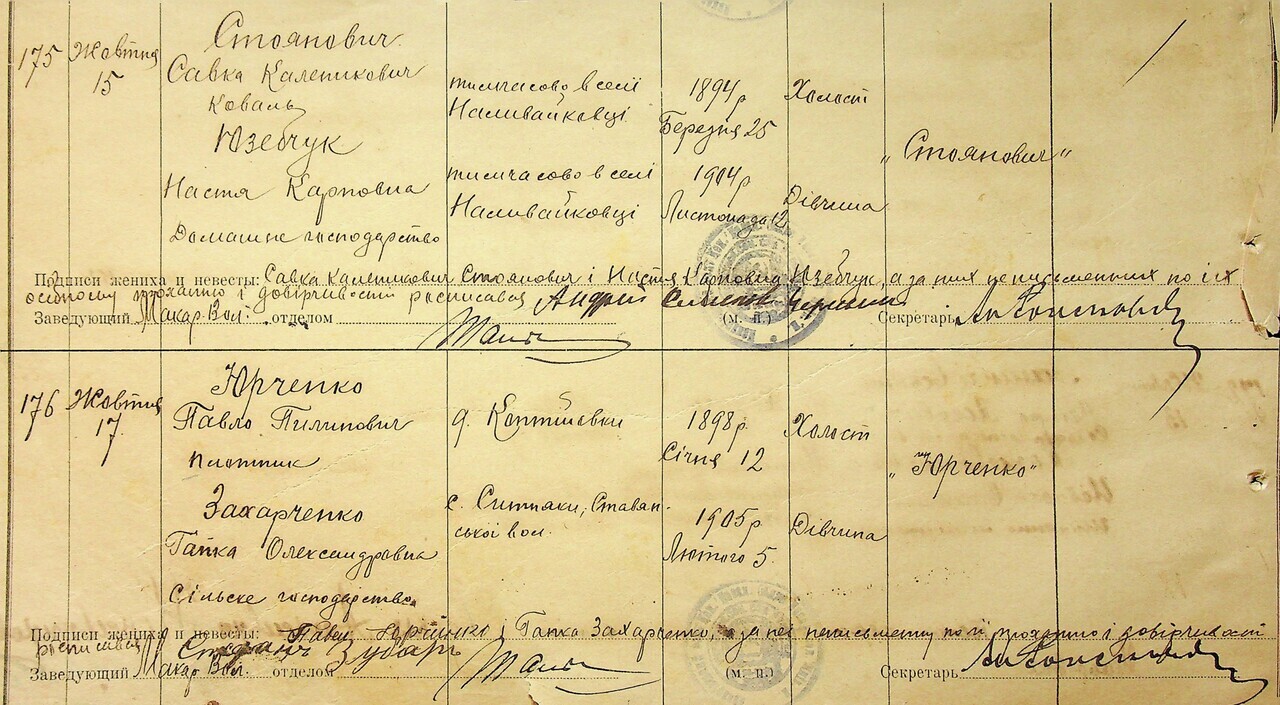 175
Жовтня
15
Стоянович
Савка Каленикович
Коваль
Юзебчук
Настя Карповна
Домашне господарство
тимчасово в селі
Наливайковці
тимчасово в селі
Наливайковці
1894 р
Березня 25
1904 р
Листопада 12
Холост
Дівчина
„Стоянович"
Подписи жениха и невесты: Савка Каленикович Стоянович і Настя Карповна Юзебчук, а за них неписьменних по їх
особному проханню і довірчивості росписався Андрій
Заведующий Макар. Вол. отделом (м. п.) Секретарь
176
Жовтня
17
Юрченко
Павло Пилипович
плотник
Захарченко
Гапка Олександровна
Сільске господарство
д. Коптіївки
с. Ситняки, Ставян-
ської вол.
1898 р.
Січня 12
1905 р
Лютого 5
Холост
Дівчина
„Юрченко"
Подписи жениха и невесты: Павло Юрченко і Гапка Захарченко, а за неї неписьменну по її проханню і довірчивості
росписався Степан Зубарь
Заведующий Макар. Вол. отделом (м. п.) Секретарь